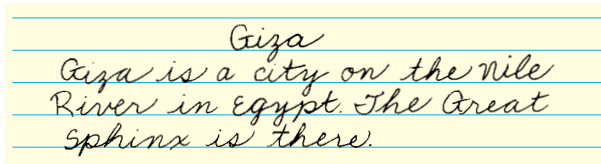 Giza
Giza is a city on the Nile
River in Egypt. The Great
Sphinx is there.